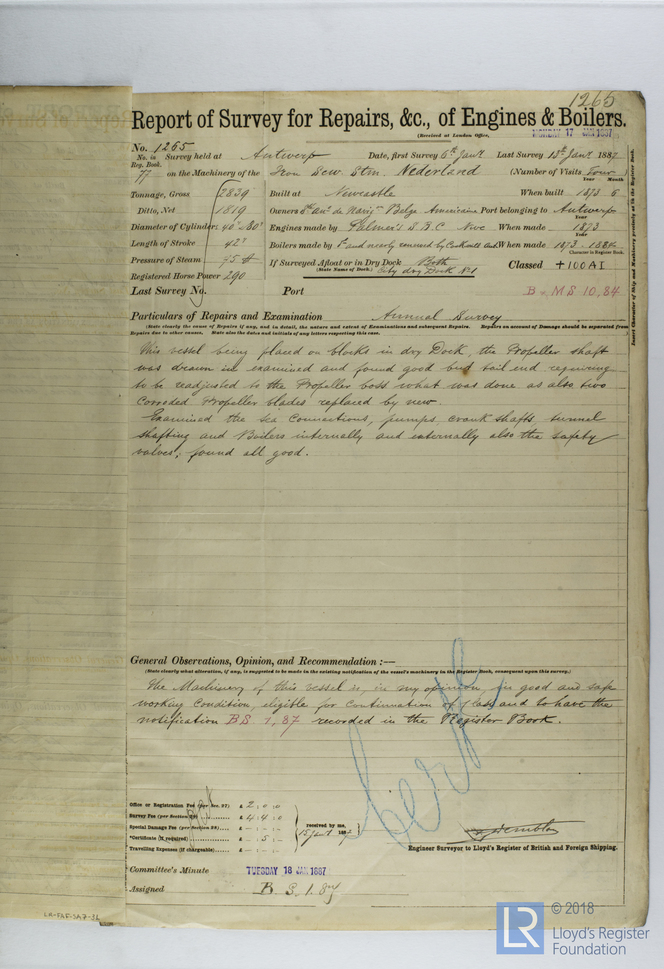 1265
Report of Survey for Repairs, &c., of Engines & Boilers.
(Received at London Office, MONDAY 17 JAN 1887
No. 1265
No. in Reg. Book. 77 Survey held at Antwerp Date, first Survey 6th Jany Last Survey 13th Jany 1887
on the Machinery of the Iron Screw Stm. Nederland (Number of Visits Four)
Year Month
Tonnage, Gross 2839 Built at Newcastle When built 1873 6
Ditto, Net 1819 Owners Belge Americaine Port belonging to Antwerp
Year
Diameter of Cylinder 40" 80" Engines made by Palmer's S.B.C Nwc When made 1873
Year
Length of Stroke 42" Boilers made by and When made 1873-188
Character in Register Book.
Pressure of Steam 75 # If Surveyed Afloat or in Dry Dock Both Classed +100A1
(State Name of Dock.) City dry Dock No1
Registered Horse Power 290
Last Survey No. Port B & MS 10,84
Particulars of Repairs and Examination Annual Survey
(State clearly the cause of Repairs if any, and in detail, the nature and extent of Examinations and subsequent Repairs. Repairs on account of Damage should be separated from
Repairs due to other causes. State also the dates and initials of any letters respecting this case.
Insert Character of Ship and Machinery precisely as in the Register Book.
This vessel being placed on blocks in dry Dock, the Propeller shaft
was drawn in examined and found good but tail end requiring
to be readjusted to the Propeller boss what was done as also two
corroded Propeller blades replaced by new.
Examined the sea Connections, pumps, crank shafts, tunnel
shafting and Boilers internally and externally also the safety
valves; found all good.
General Observations, Opinion, and Recommendation :—
(State clearly what alteration, if any, is suggested to be made in the existing notification of the vessel's machinery in the Register Book, consequent upon this survey.)
The Machinery of this vessel is, in my opinion, in good and safe
working Condition, eligible for Continuation of Class and to have the
notification BS 1,87 recorded in the Register Book.
Cert
Office or Registration Fee (per Sec. 27) £ 2 : 0 : 0
Survey Fee (per Section 28) £ 4 : 4 : 0
Special Damage Fee (per Section 28) £ - : - : -
*Certificate (if required) £ - : 5 : -
Travelling Expenses (if chargeable) £ - : - : -
received by me,
15 Jany 1887
Engineer Surveyor to Lloyd's Register of British and Foreign Shipping.
Committee's Minute TUESDAY 18 JAN 1887
Assigned B. S. 1.87
LR-FAF-SA7-3L
LR
© 2018
Lloyd's Register
Foundation